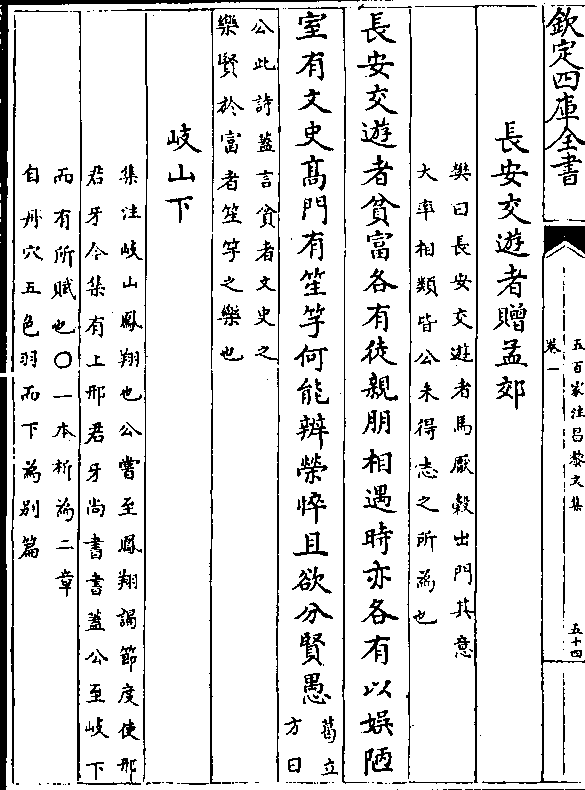 欽定四庫全書
五百家注昌黎文集
卷一
五十四
長安交遊者贈孟郊
樊曰長安交遊者馬厭穀出門其意
大率相類皆公未得志之所為也
長安交遊者貧富各有徒親朋相遇時亦各有以娛陋
室有文史髙門有笙竽何能辨榮悴且欲分賢愚
葛立
方曰
公此詩蓋言貧者文史之
樂賢於富者笙竽之樂也
岐山下
集注岐山鳳翔也公嘗至鳳翔謁節度使邢
君牙今集有上邢君牙尚書書蓋公至岐下
而有所賦也〇一本析為二章
自丹穴五色羽而下為别篇